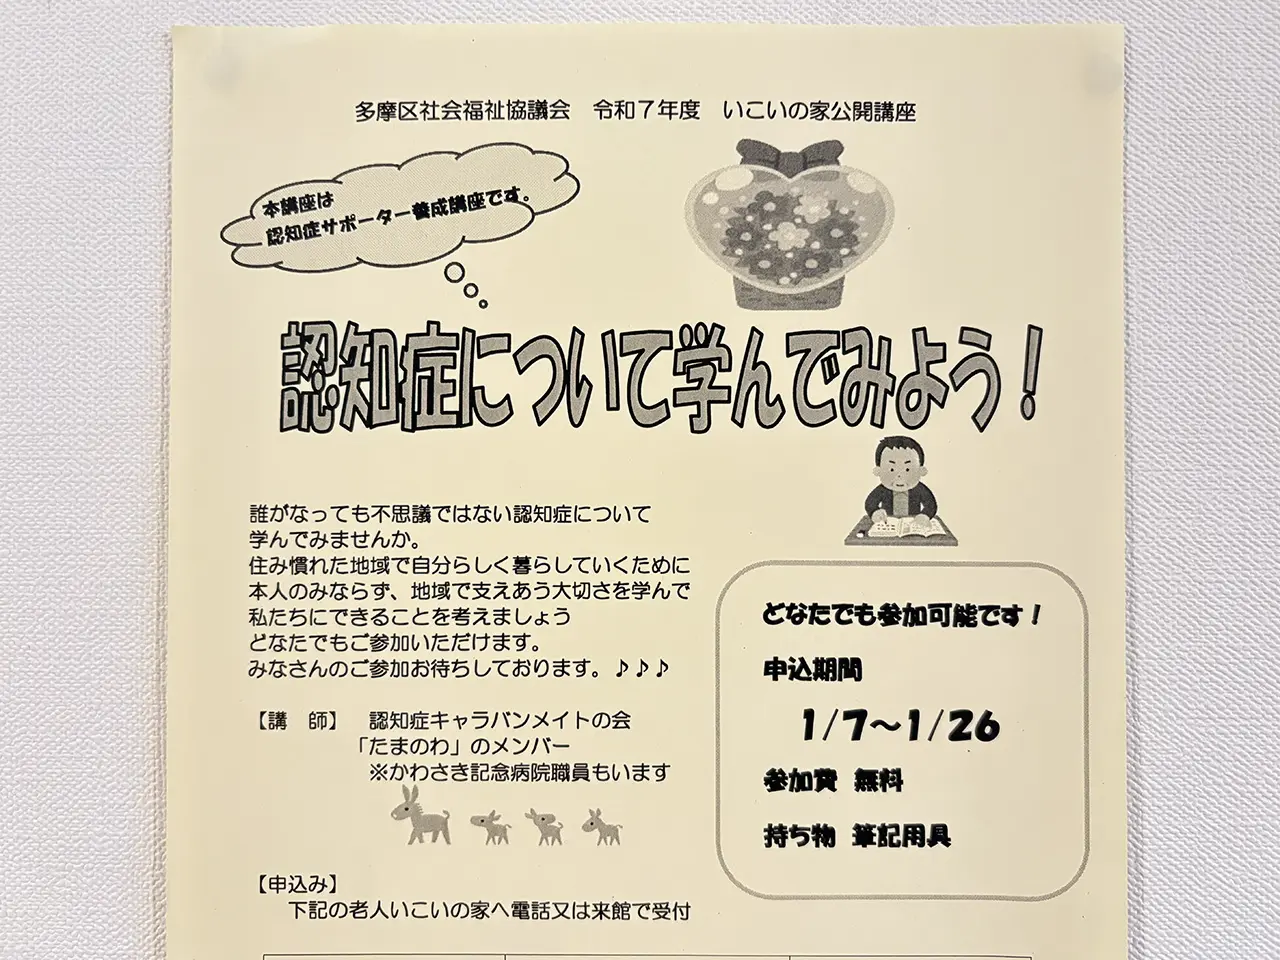 多摩区社会福祉協議会　令和７年度　いこいの家公開講座
本講座は
認知症サポーター養成講座です。
認知症について学んでみよう！
誰がなっても不思議ではない認知症について
学んでみませんか。
住み慣れた地域で自分らしく暮らしていくために
本人のみならず、地域で支えあう大切さを学んで
私たちにできることを考えましょう
どなたでもご参加いただけます。
みなさんのご参加お待ちしております。♪♪♪
【講　師】　認知症キャラバンメイトの会
「たまのわ」のメンバー
※かわさき記念病院職員もいます
【申込み】
下記の老人いこいの家へ電話又は来館で受付
どなたでも参加可能です！
申込期間
1/7～1/26
参加費　無料
持ち物　筆記用具